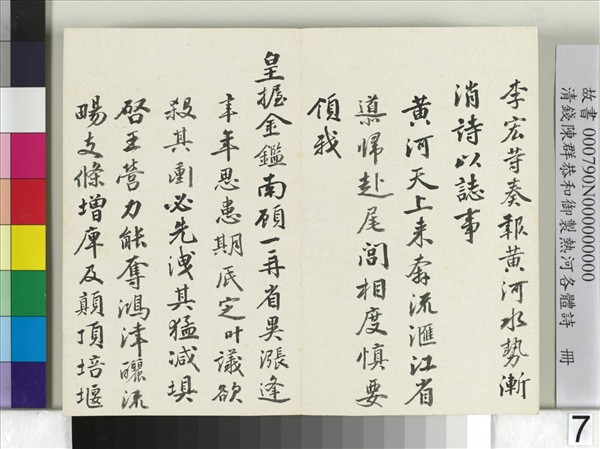 故書 000790N000000000
清錢陳群恭和御製熱河各體詩 冊
李宏等奏報黃河水勢漸
消詩以誌事
黃河天上来奔流滙江省
歸赴尾閭相度慎要
領我
皇握金鑑南頋一再省異漲逢
年思患期厎定叶議欲
殺其衝必先洩其猛减埧
啓王營力能奪鴻津釃流
暢支條增庳及顛頂培堰
7